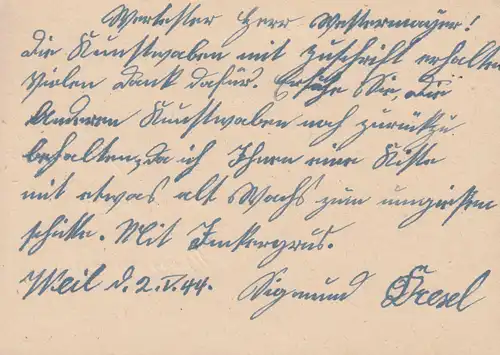 Wertester Herr Westermayer!
Die Kunstwaben mit Zuschrift erhalten
Vielen Dank dafür. Ersuche Sie, die
Anderen Kunstwaben noch zurückzu
behalten, da ich Ihnen eine Kiste
mit etwas alt Wachs zum umgiessen
schicke. Mit Imkergrus.
Weil d. 2.V.44. Sigmund